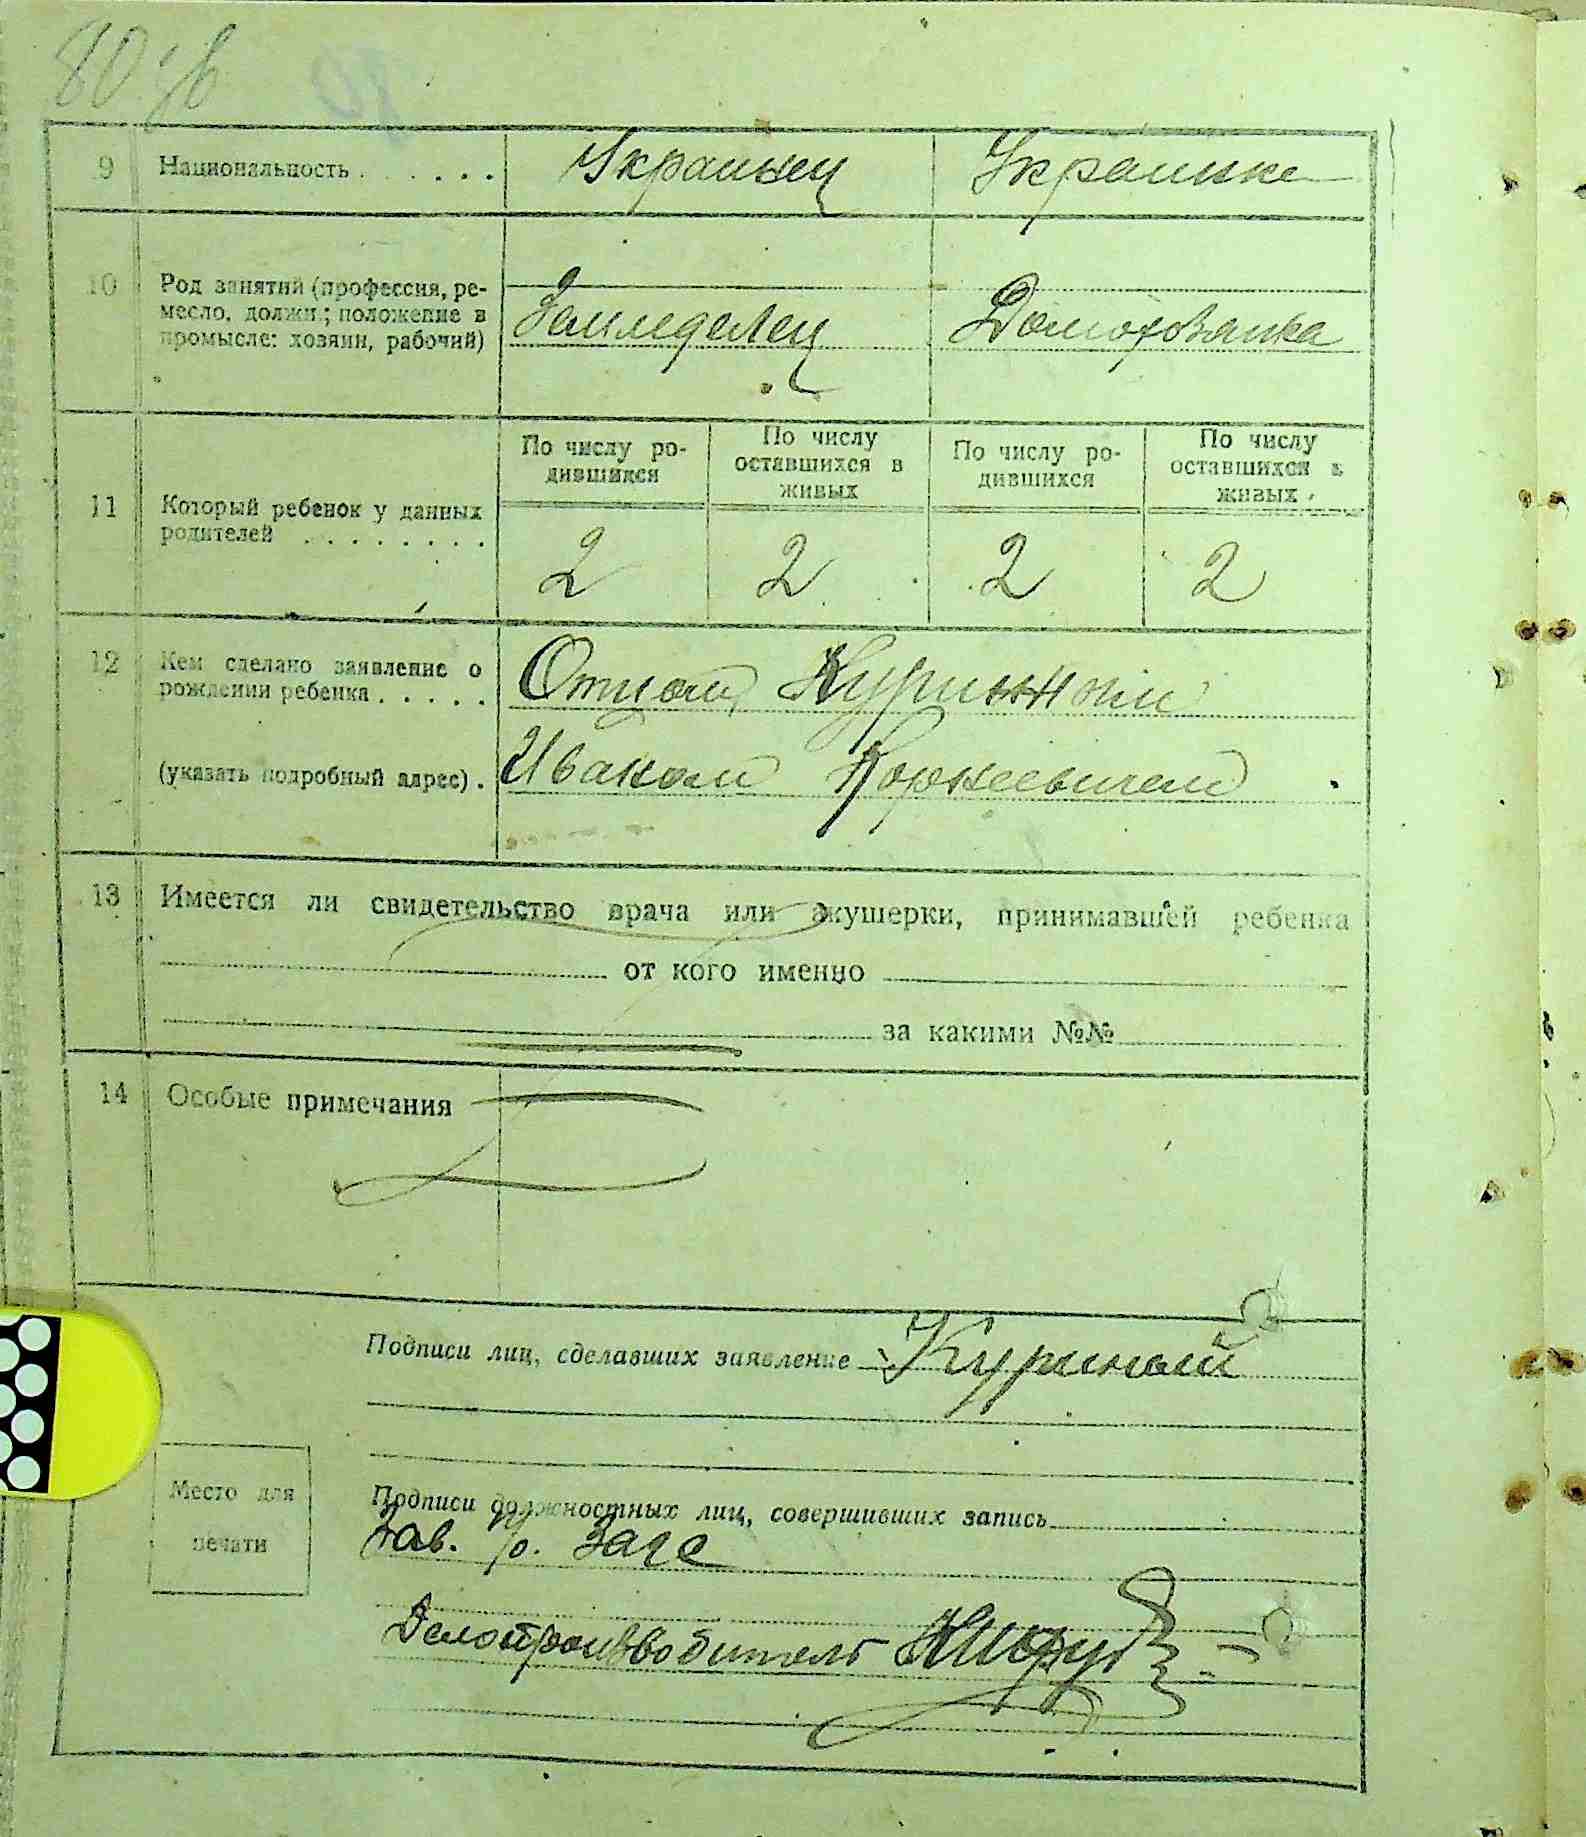 80 зв
9 Национальность . . . . . . Украинец Украинка
10 Род занятий (профессия, ре-
месло, должн; положение в
промысле: хозяин, рабочий)
Земледелец Домохозяйка
По числу ро-
дившихся
По числу
оставшихся в
живых
По числу ро-
дившихся
По числу
оставшихся в
живых
11 Который ребенок у данных
родителей . . . . . . . .
2 2 2 2
12 Кем сделано заявление о
рождении ребенка . . . . .
Отцом
(указать подробный адрес) .
Иваном Корнеевичем
13 Имеется ли свидетельство врача или акушерки, принимавшей ребенка
от кого именно
за какими №№
14 Особые примечания
Подписи лиц, сделавших заявление Куриный
Место для
печати
Подписи должностных лиц, совершивших запись
Зав. р. Загс
Делопроизводитель